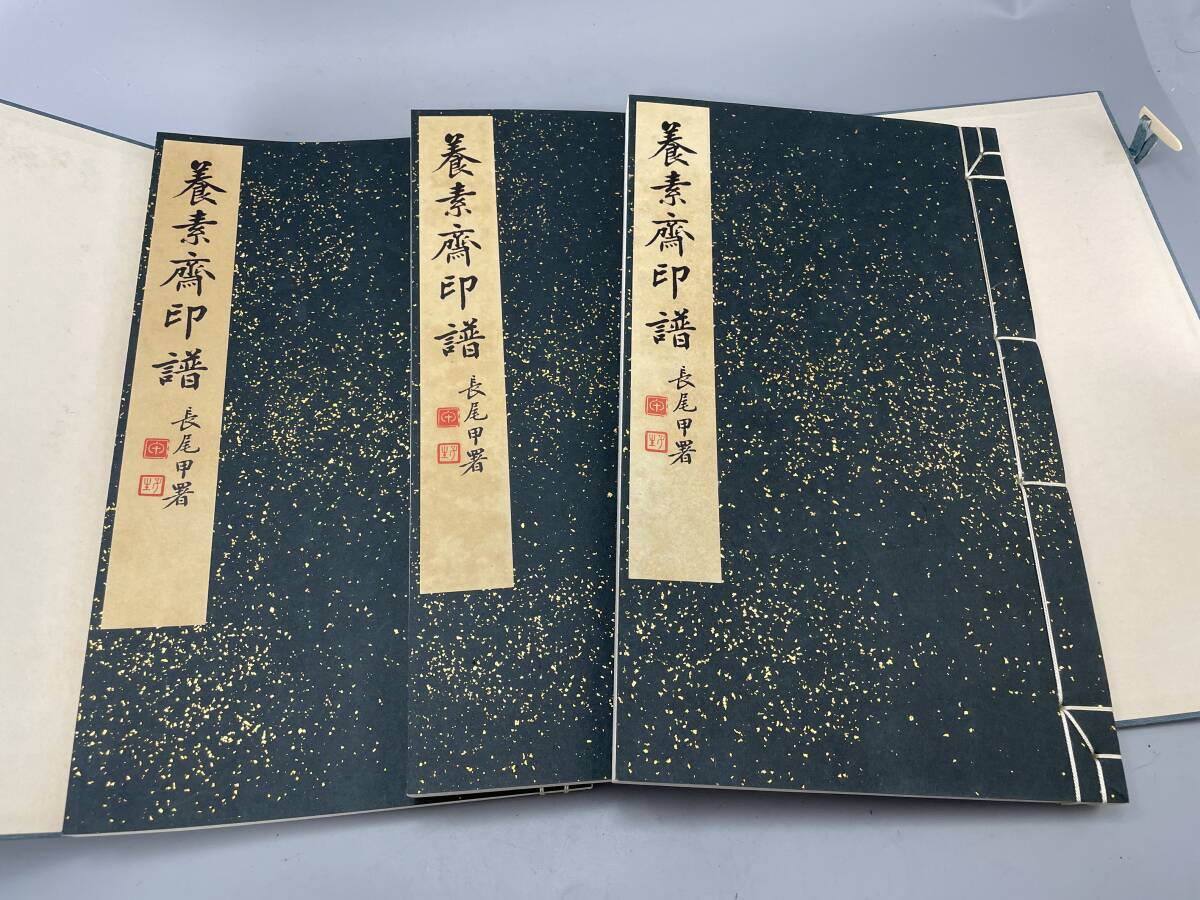 養素齋印譜
長尾甲署
養素齋印譜
長尾甲署
養素齋印譜
長尾甲署